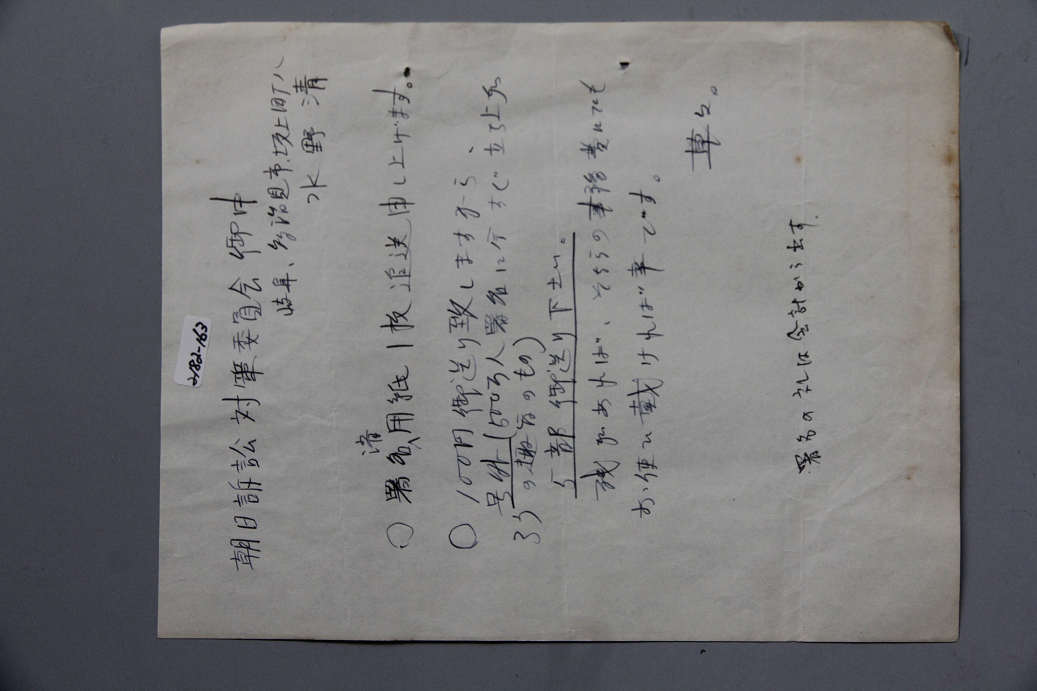 2182-163
朝日訴訟対策委員会御中
岐阜、多治見市坂上町八
水野清
○ 署名用紙1枚追送申し上げます。
済
○ 100円御送り致しますから、
号外(500万人署名に今すぐ立ち上ろ
うの趣旨のもの)
5部御送り下さい。
残があれば、そちらの事務費にでも
お使い戴ければ幸です。
草々。
署名のお礼は会計から出す